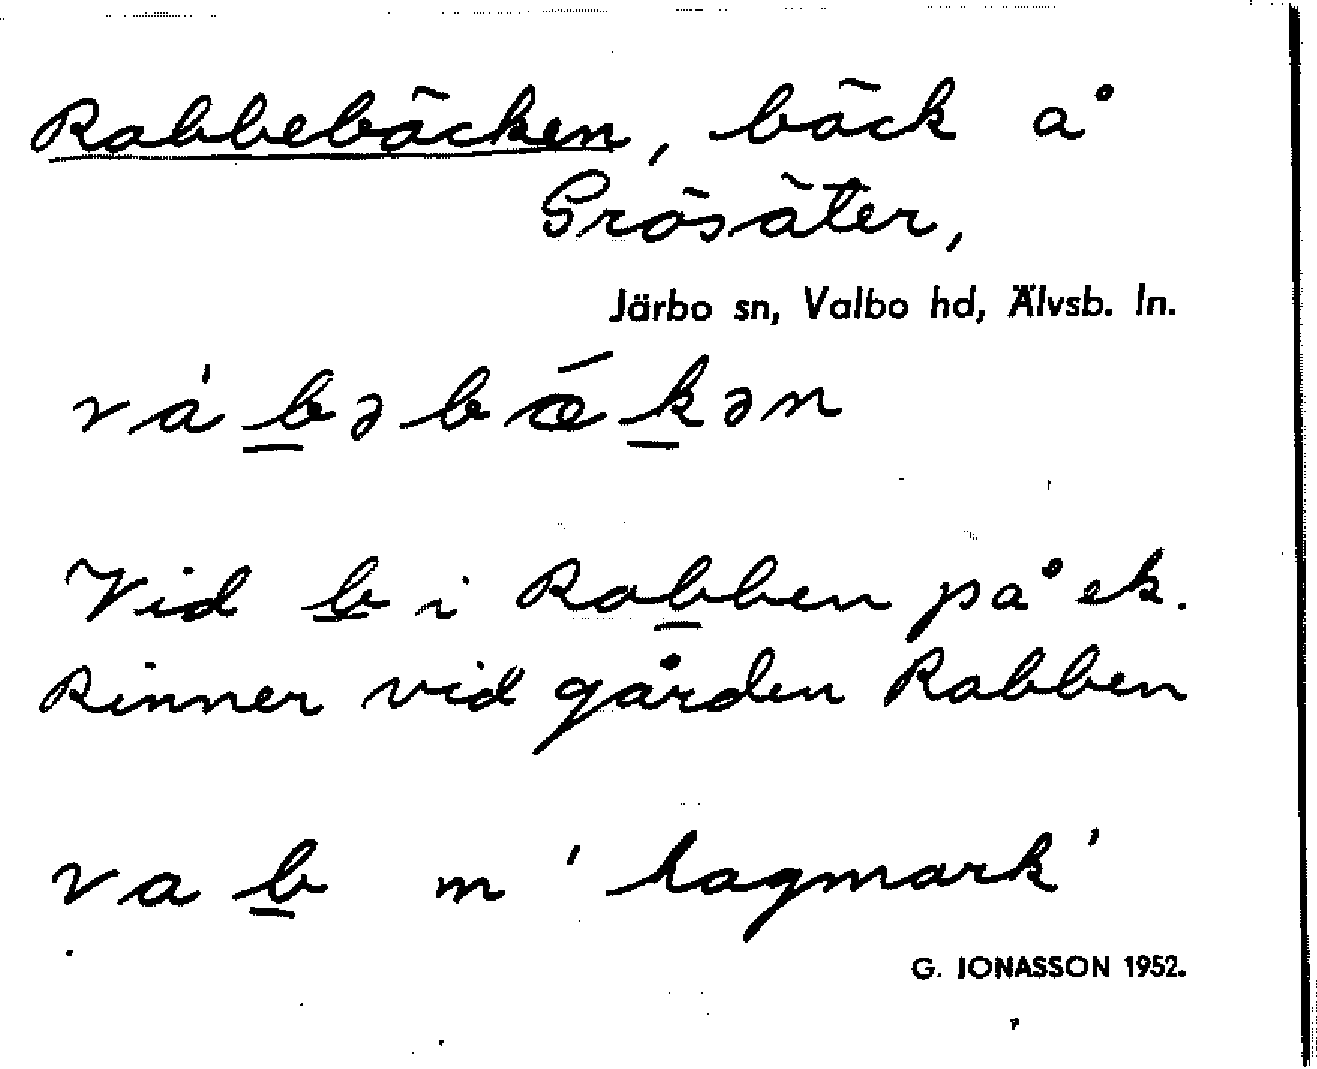 Rabbebäcken, bäck å
Grösäter,
Järbo sn, Valbo hd, Älvsb. ln.
rábəbǽkən
Vid b i Rabben på ek.
Rinner vid gården Rabben
rab m 'hagmark'
G. IONASSON 1952.